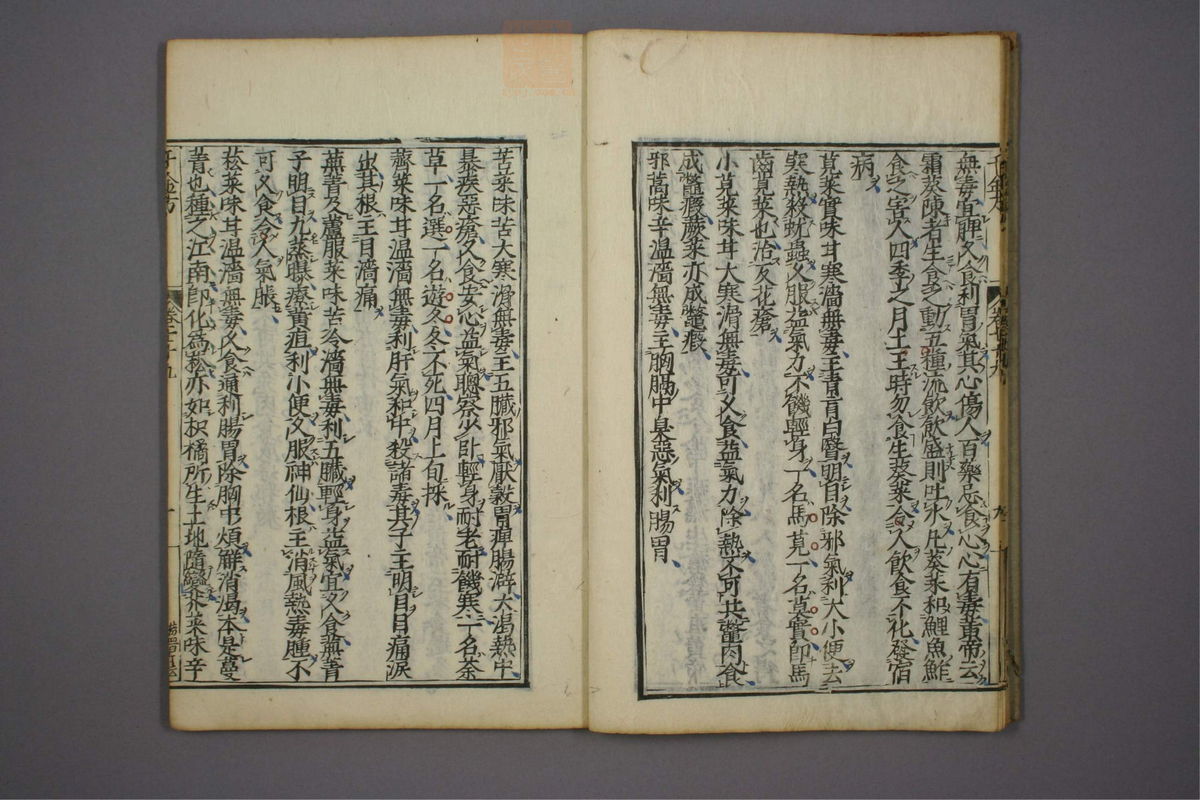 無毒宜脾久食利胃氣其心傷人百藥忌食心心有毒黃帝云
霜葵陳者生食之動五種流飲飲盛則吐水凡葵菜和鯉魚鮓
食之害人四季之月土王時勿食生葵菜令人飲食不化發宿
病
莧菜實味甘寒濇無毒主青盲白瞖明目除邪氣利大小便去
寒熱殺蚘蟲久服益氣力不饑輕身一名馬莧一名莫實即馬
齒莧菜也治反花瘡
小莧菜味甘大寒滑無毒可久食益氣力除熱不可共鼈肉食
成鼈癥蕨菜亦成鼈瘕
邪蒿味辛溫濇無毒主胸膈中臭惡氣利腸胃
苦菜味苦大寒滑無毒主五臟邪氣厭穀胃痺腸澼大渴熱中
暴疾惡瘡久食安心益氣聰察少臥輕身耐老耐饑寒一名荼
草一名選一名遊冬冬不死四月上旬採
薺菜味甘溫濇無毒利肝氣和中殺諸毒其子主明目目痛淚
出其根主目濇痛
蕪菁及蘆菔菜味苦冷濇無毒利五臟輕身益氣宜久食蕪菁
子明目九蒸曝療黃疸利小便久服神仙根主消風熱毒腫不
可久食令人氣脹
菘菜味甘溫濇無毒久食通利腸胃除胸中煩解消渴本是蔓
菁也種之江南即化爲菘亦如枳橘所生土地隨變芥菜味辛
千金方
卷二十九